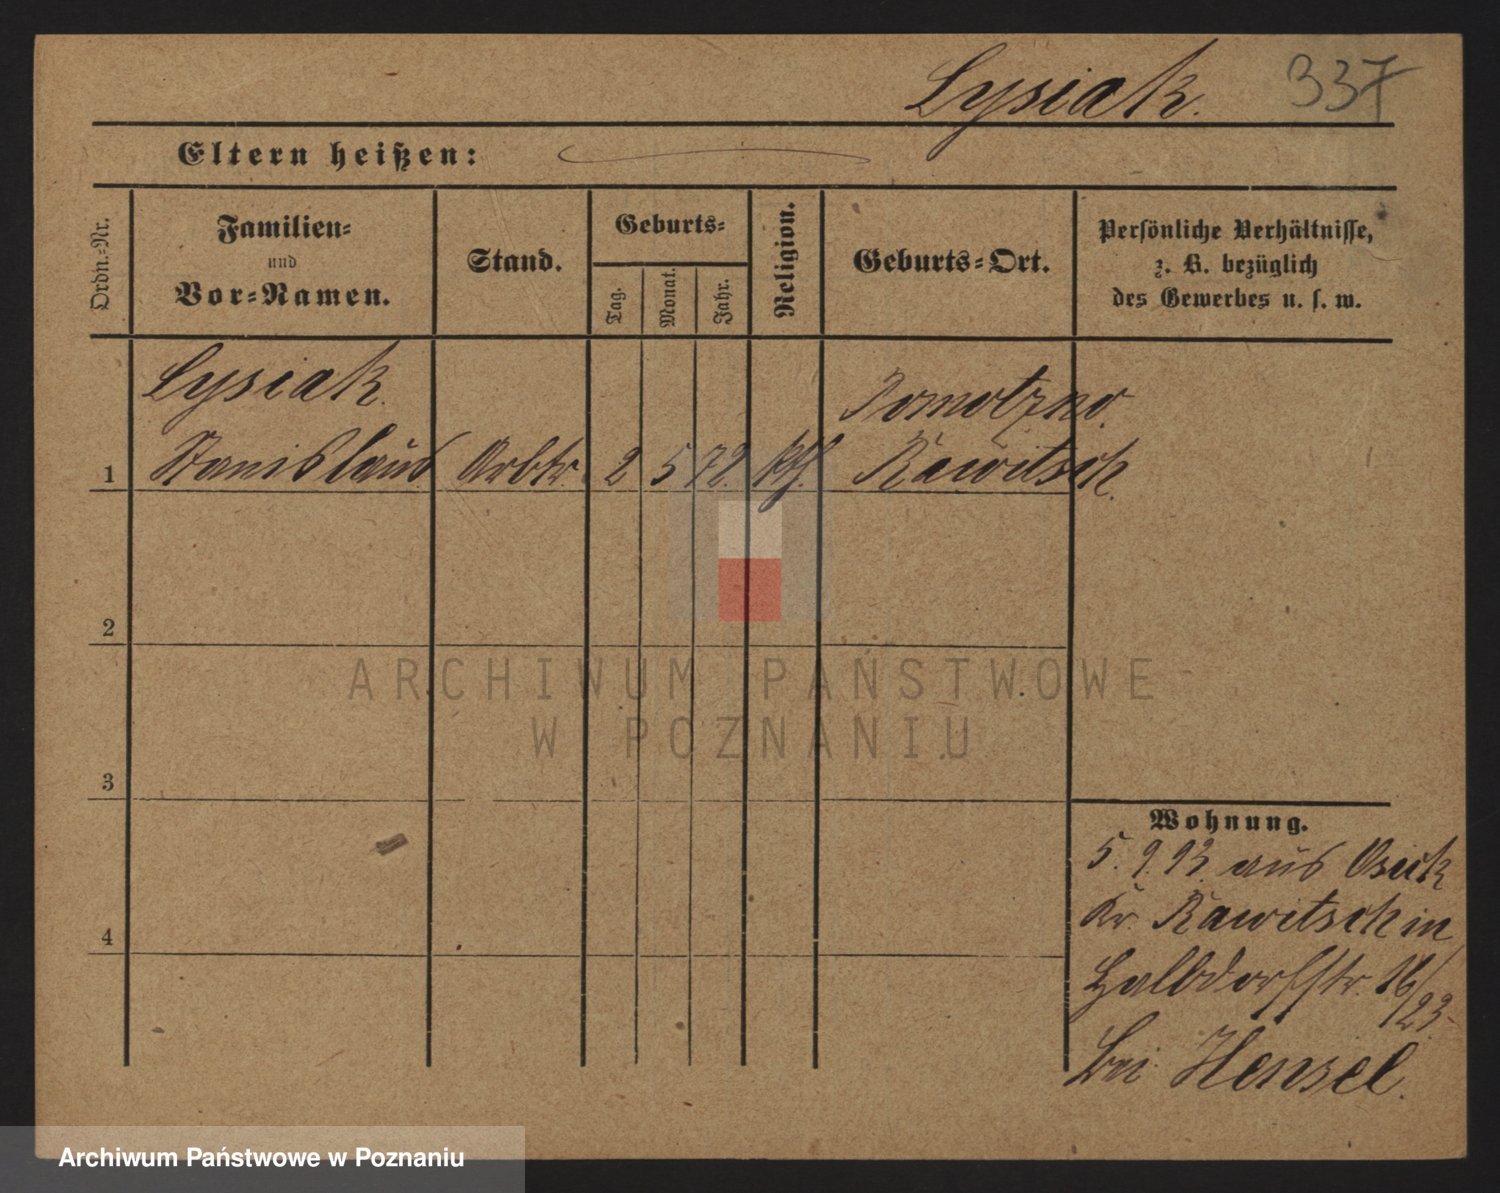 Lysiak. 337
Eltern heißen:
Ordn.-Nr.
Familien-
und
Vor-Namen.
Stand.
Geburts-
Tag.
Monat.
Jahr.
Religion.
Geburts-Ort.
Persönliche Verhältnisse,
z. B. bezüglich
des Gewerbes u. s. w.
Lysiak.
1 Stanislaus Arbtr. 2 5 72. kth. Rawitsch.
2
3
4
Wohnung.
5. 9. 93. aus Osiek
Kr. Rawitsch in
Halbdorfstr. 16/
23.
bei Hensel.
ARCHIWUM PAŃSTWOWE
W POZNANIU
Archiwum Państwowe w Poznaniu